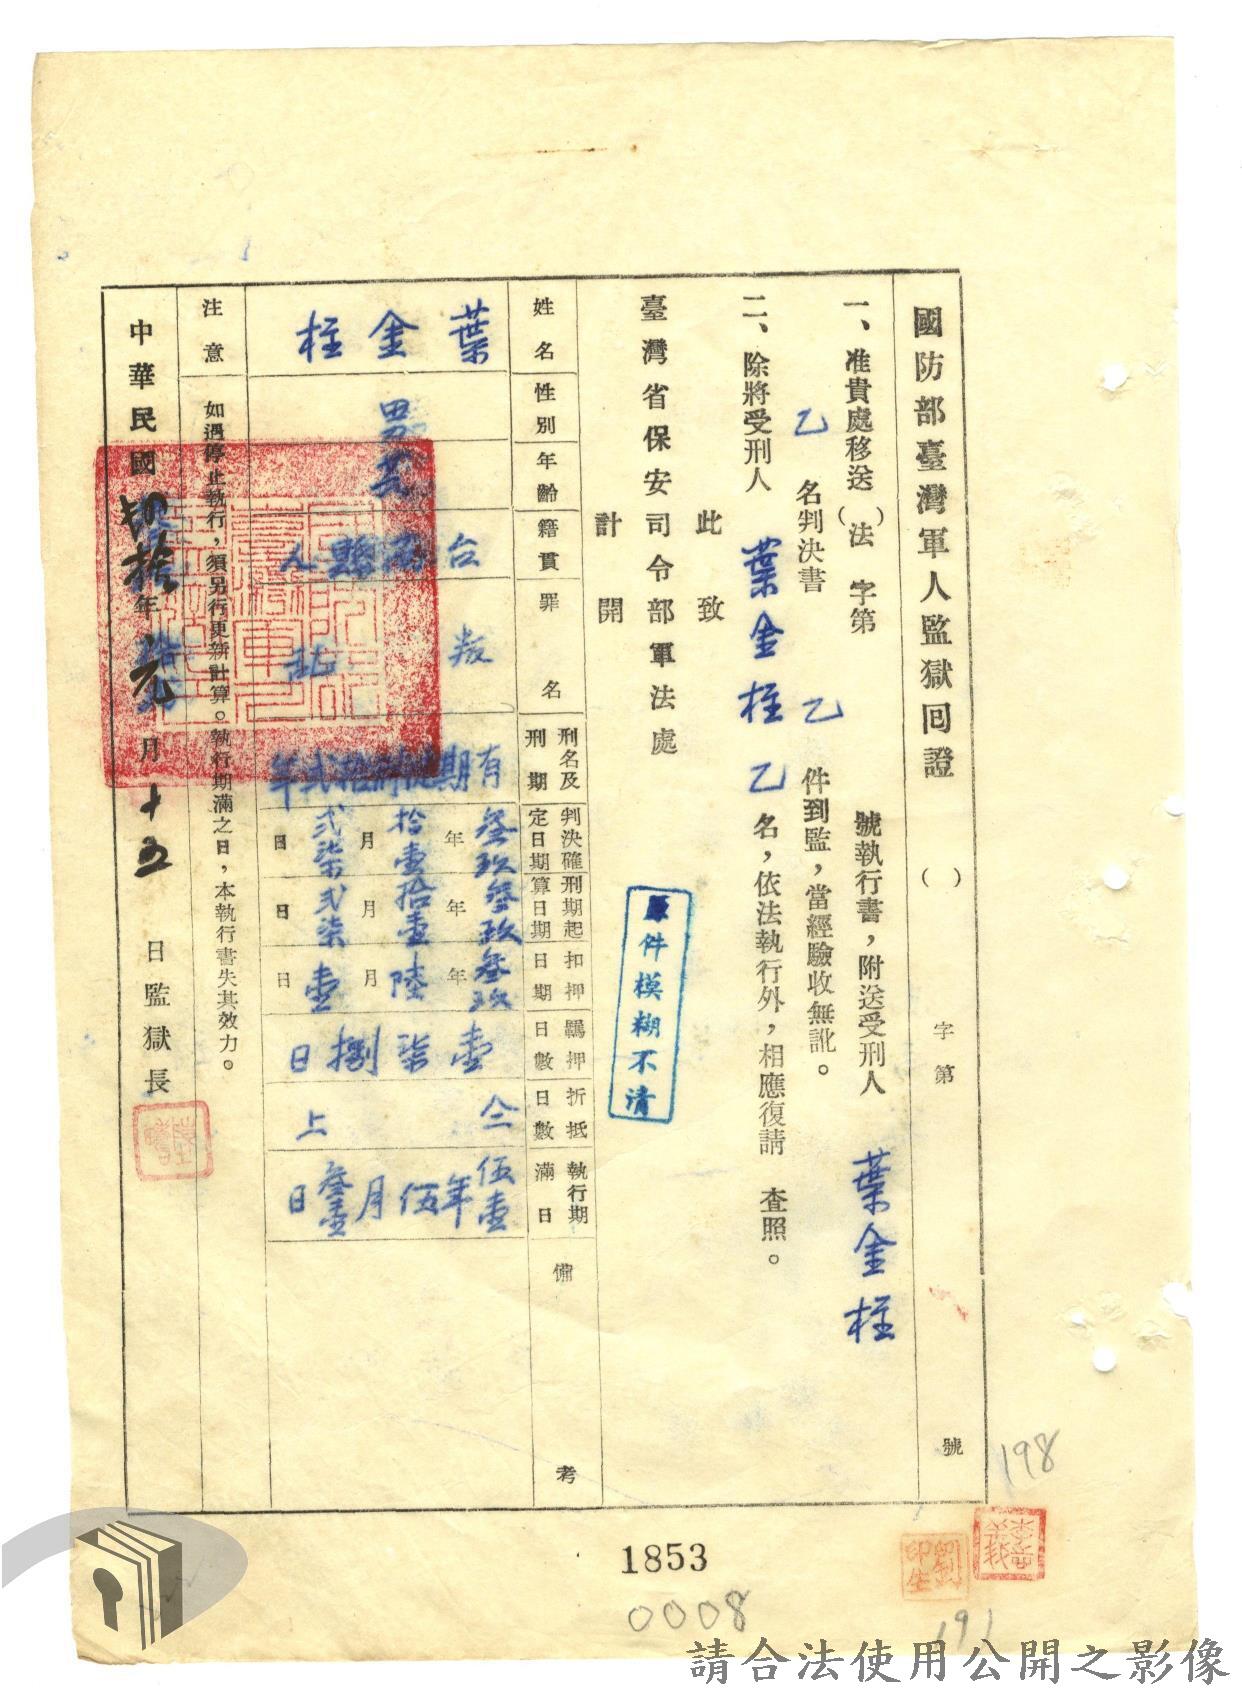 國防部臺灣軍人監獄回證 ( ) 字第 號
一、准貴處移送( )法 字第 號執行書,附送受刑人 葉金柱
乙 名判決書 乙 件到監,當經驗收無訛。
二、除將受刑人 葉金柱 乙 名,依法執行外,相應復請 查照。
此 致
臺灣省保安司令部軍法處
計 開
原件模糊不清
姓名 葉金柱
性別 男
年齡
籍貫 台 縣人
罪名 叛亂
刑名及刑期 有期徒刑拾弍年
判決確定日期 叁玖年拾壹月弍柒日
刑期起算日期 叁玖年拾壹月弍柒日
扣押日期 叁玖年陸月壹日
羈押日數 壹柒捌日
折抵日數 仝上
執行期滿日 伍壹年伍月叁壹日
備考
注意 如遇停止執行,須另行更新計算。執行期滿之日,本執行書失其效力。
中華民國 年元月十五日監獄長
198
1853
0008
劉 生印
191
請合法使用公開之影像